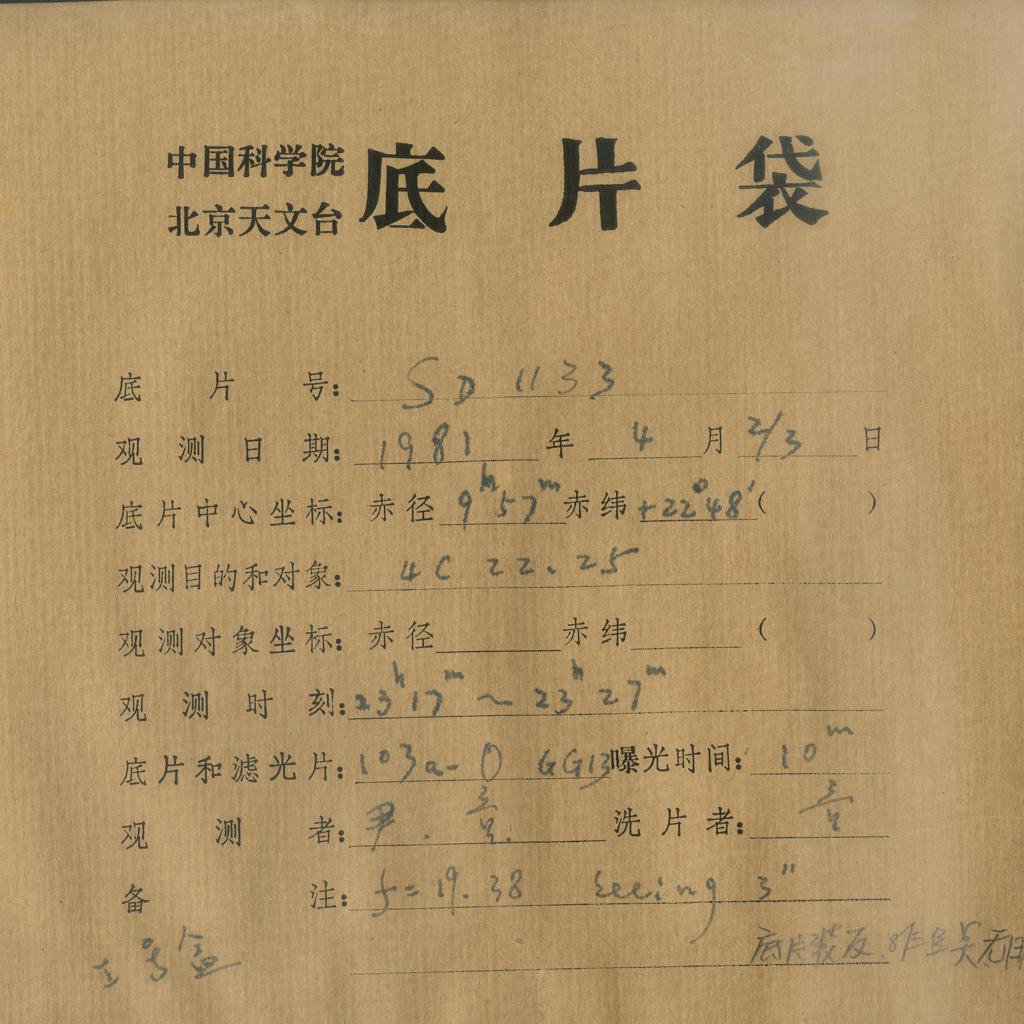 中国科学院
北京天文台 底片袋
底片号: SD 1133
观测日期: 1981 年 4 月 2/3 日
底片中心坐标: 赤径 9h57m 赤纬 +22°48′ ( )
观测目的和对象: 4C 22.25
观测对象坐标: 赤径 赤纬 ( )
观测时刻: 23h17m ~ 23h27m
底片和滤光片: 103a-O GG13 曝光时间: 10m
观测者: 尹. 洗片者:
备注: f=19.38 seeing 3″
底片装反
号盒